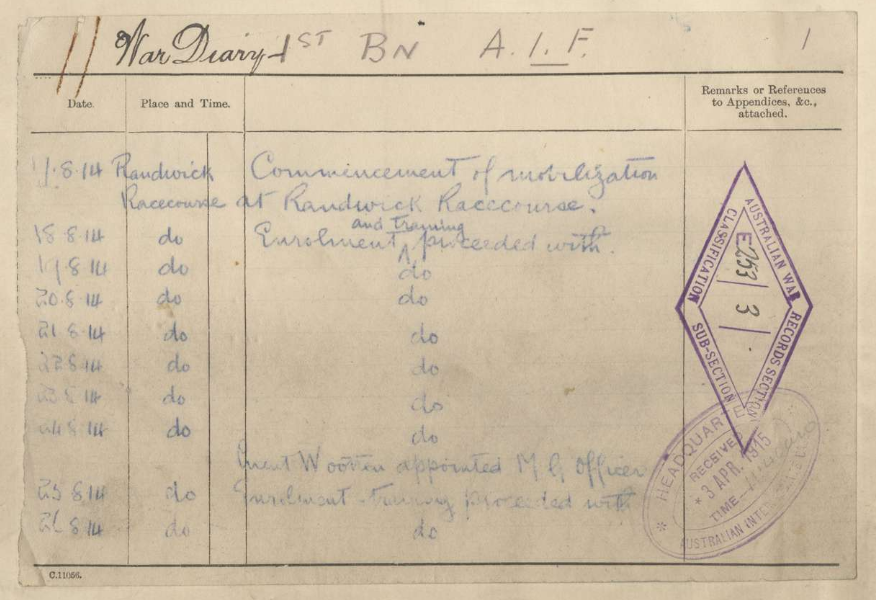 War Diary - 1ST BN A.I.F. 1
Date. Place and Time. Remarks or References
to Appendices, &c.,
attached.
17.8.14 Randwick Commencement of mobilization
Racecourse at Randwick Racecourse.
and training
18.8.14 do Enrolment proceeded with.
19.8.14 do do
20.8.14 do do
21.8.14 do do
22.8.14 do do
23.8.14 do do
24.8.14 do do
Lieut Wootten appointed M G Officer
25.8.14 do Enrolment training proceeded with
26.8.14 do do
C.11056.
AUSTRALIAN WAR RECORDS SECTION
CLASSIFICATION SUB-SECTION
E253/3/
HEADQUARTERS
RECEIVED
* 3 APR. 1915
TIME
AUSTRALIAN